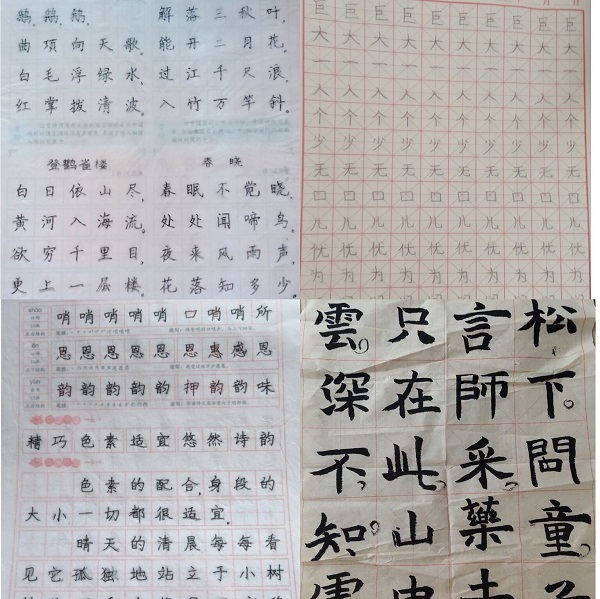 鹅,鹅,鹅,
曲项向天歌。
白毛浮绿水,
红掌拨清波。
解落三秋叶,
能开二月花。
过江千尺浪,
入竹万竿斜。
登鹳雀楼
白日依山尽,
黄河入海流。
欲穷千里目,
更上一层楼。
春晓
春眠不觉晓,
处处闻啼鸟。
夜来风雨声,
花落知多少。
巨巨巨巨巨巨巨巨巨
大大大大大大大大大
一一一一一一一一一
人人人人人人人人人
个个个个个个个个个
少少少少少少少少少
无无无无无无无无无
口口口口口口口口口
儿儿儿儿儿儿儿儿儿
为为为为为为为为为
哨哨哨哨哨口哨哨所
恩恩恩恩恩恩惠感恩
韵韵韵韵韵押韵韵味
精巧色素适宜悠然诗韵
色素的配合,身段的
大小一切都很适宜。
晴天的清晨每每看
见它孤独地站立于小树
松下問童子
言師采藥去
只在此山中
雲深不知